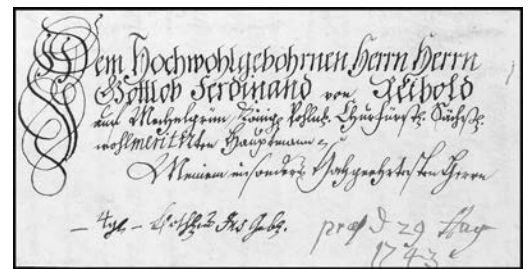 Dem Hochwohlgebohrnen Herrn Herrn
Gottlob Ferdinand von Reibold
auf Mechelgrün König. Pohln. Churfürstl. Sächß.
wohlmeritirten Hauptmann
Meinem insonders Hochgeehrtesten Herrn
præs d 29 May
1743